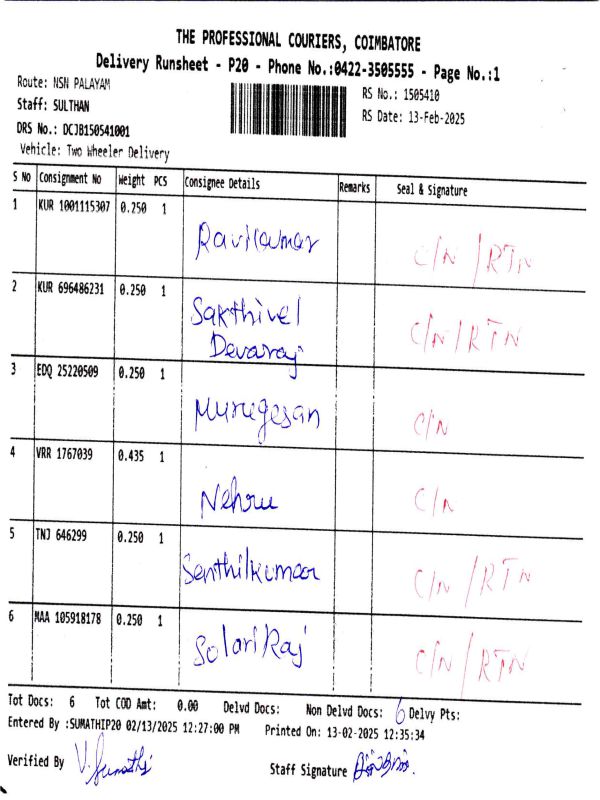 THE PROFESSIONAL COURIERS, COIMBATORE
Delivery Runsheet - P20 - Phone No.:0422-3505555 - Page No.:1
Route: NSN PALAYAM
RS No.: 1505410
Staff: SULTHAN
RS Date: 13-Feb-2025
DRS No.: DCJB150541001
Vehicle: Two Wheeler Delivery
S No Consignment No Weight PCS Consignee Details Remarks Seal & Signature
1 KUR 1001115307 0.250 1
Ravikumar C/N /RTN
2 KUR 696486231 0.250 1
Sakthivel
Devaraj C/N/RTN
3 EDQ 25220509 0.250 1
Murugesan C/N
4 VRR 1767039 0.435 1
Nehru C/N
5 TNJ 646299 0.250 1
Senthilkumar C/N /RTN
6 MAA 105918178 0.250 1
Solari Raj C/N /RTN
Tot Docs: 6 Tot COD Amt: 0.00 Delvd Docs: Non Delvd Docs: 6 Delvy Pts:
Entered By :SUMATHIP20 02/13/2025 12:27:00 PM Printed On: 13-02-2025 12:35:34
Verified By V. Sumathi
Staff Signature